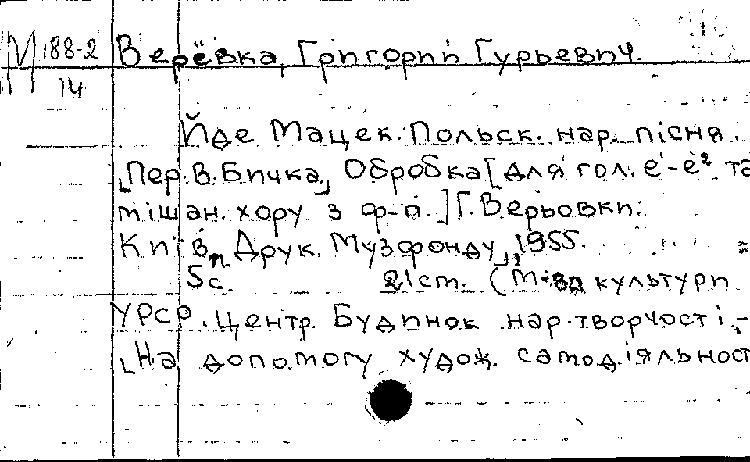 М 188-2
14
Верёвка, Григорий Гурьевич.
Йде Мацек. Польск. нар. пісня.
Пер. В. Бичка, Обробка [для гол. е¹-е² та
мішан. хору з ф-п.] Г. Верьовки.
Київ, Друк. Музфонду, 1955.
5с. 21 ст. (М-во культури
УРСР. Центр. Будинок нар. творчості.-
На допомогу худож. самодіяльност